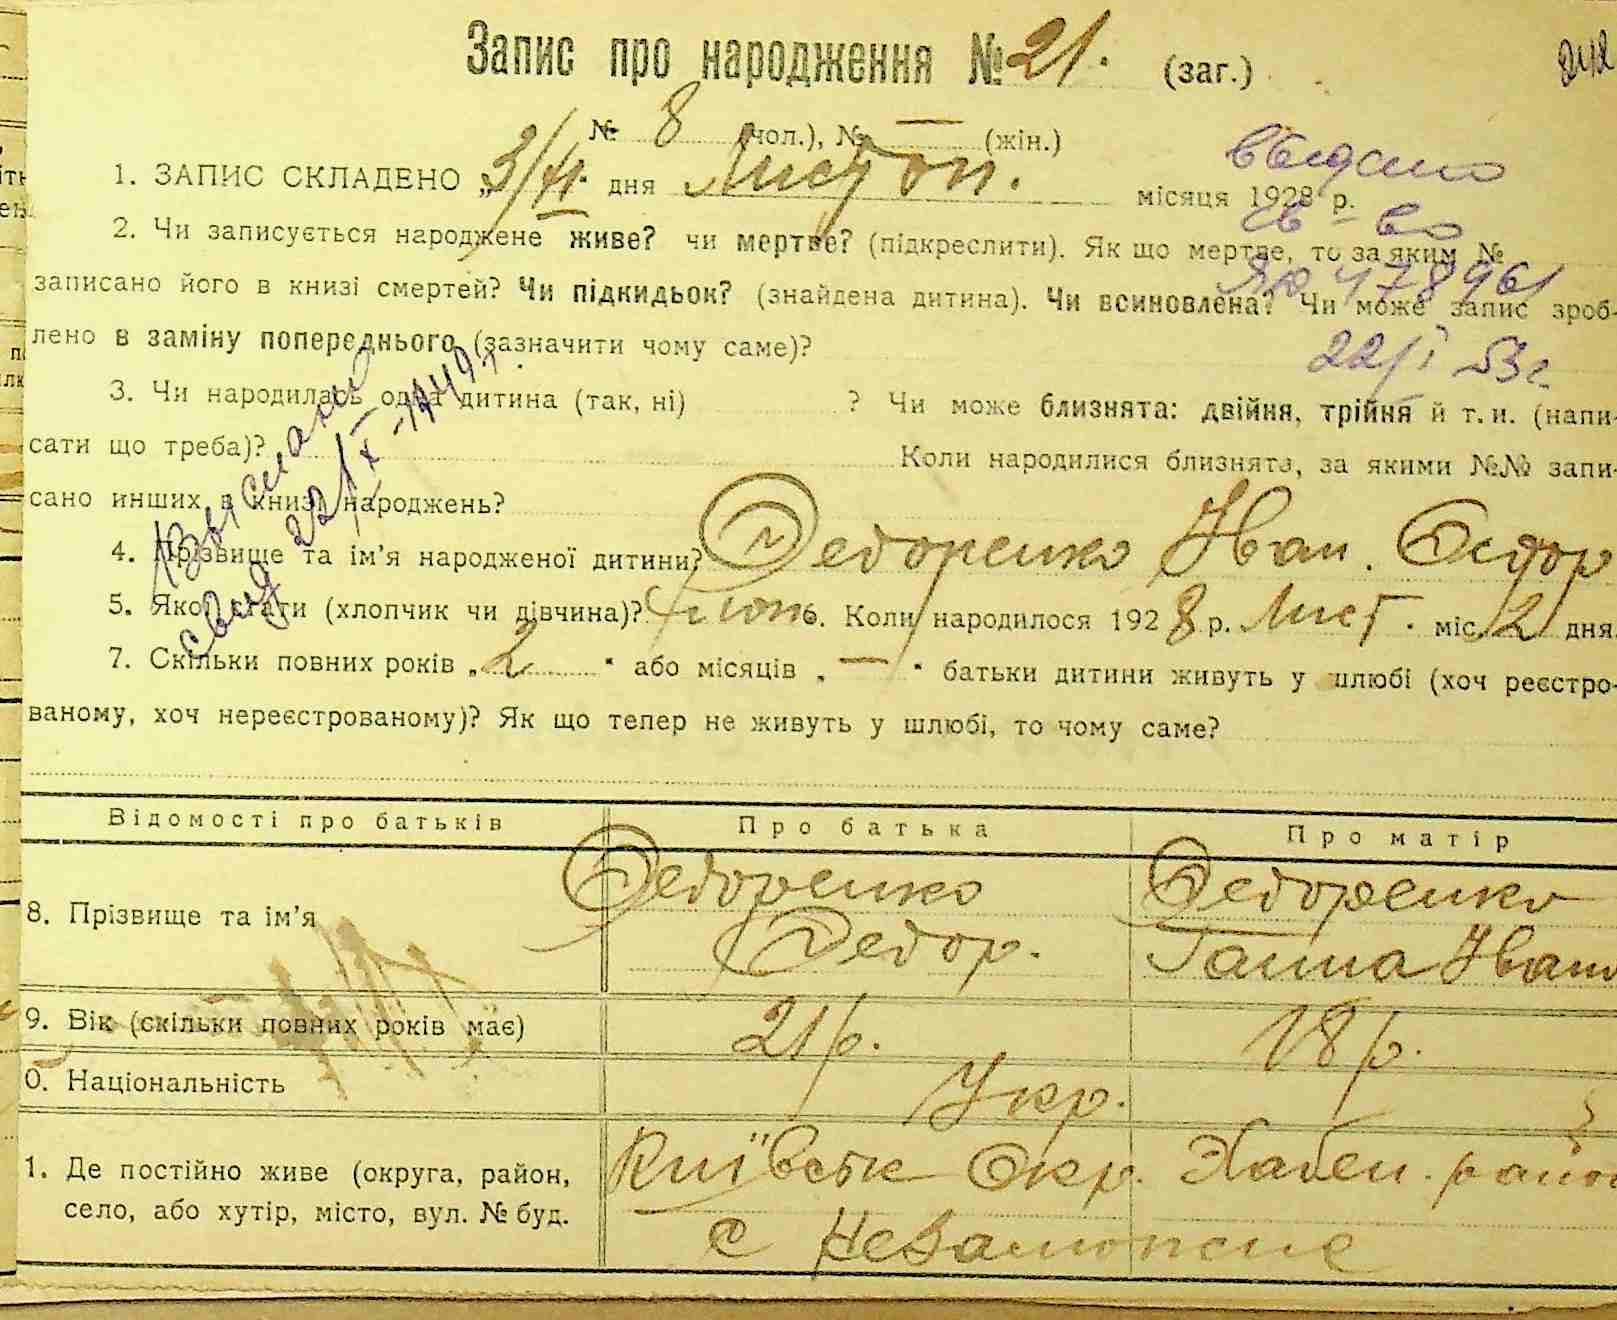 Запис про народження № 21. (заг.)
№ 8 (чол.), № — (жін.)
1. ЗАПИС СКЛАДЕНО „3/XI" дня Листоп. місяця 1928 р.
выдано
св-во
ЯЮ 478961
22/I 53 г
2. Чи записується народжене живе? чи мертве? (підкреслити). Як що мертве, то за яким №
записано його в книзі смертей? Чи підкидьок? (знайдена дитина). Чи всиновлена? Чи може запис зроб-
лено в заміну попереднього (зазначити чому саме)?
3. Чи народилась одна дитина (так, ні) ? Чи може близнята: двійня, трійня й т. и. (напи-
сати що треба)? Коли народилися близнята, за якими №№ запи-
сано инших в книзі народжень?
4. Прізвище та ім'я народженої дитини? Федоренко Іван. Федор
5. Якої стати (хлопчик чи дівчина)? 6. Коли народилося 1928 р. Лист. міс. 2 дня.
7. Скільки повних років „2" або місяців „—" батьки дитини живуть у шлюбі (хоч реєстро-
ваному, хоч нереєстрованому)? Як що тепер не живуть у шлюбі, то чому саме?
Відомості про батьків Про батька Про матір
8. Прізвище та ім'я Федоренко Федор. Федоренко Ганна Іван
9. Вік (скільки повних років має) 21 р. 18 р.
0. Національність Укр.
1. Де постійно живе (округа, район, Київськ Окр. Хабен. район
село, або хутір, місто, вул. № буд. с Незаможне